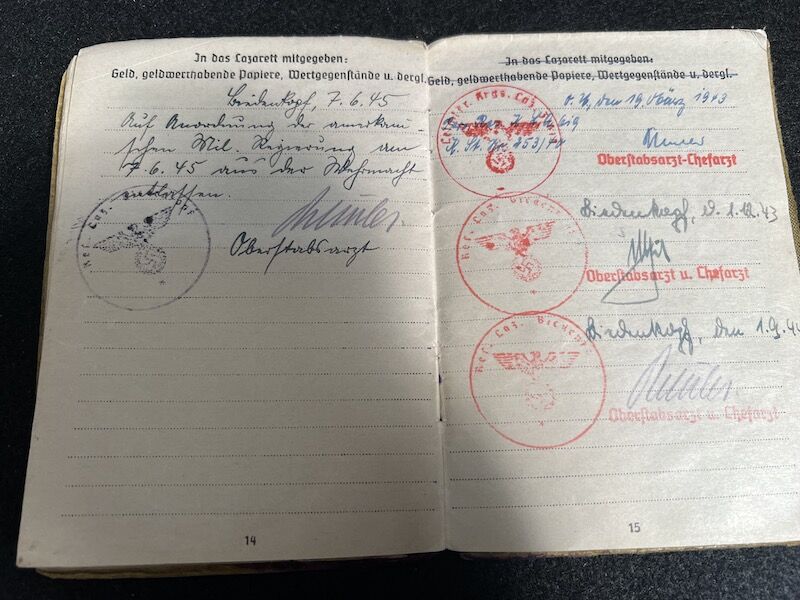 In das Lazarett mitgegeben:
Geld, geldwerthabende Papiere, Wertgegenstände u. dergl.
Biedenkopf, 7.6.45
Auf Anordnung der amerikani-
schen Mil. Regierung am
7.6.45 aus der Wehrmacht
entlassen.
Res. Laz.
Oberstabsarzt
14
In das Lazarett mitgegeben:
Geld, geldwerthabende Papiere, Wertgegenstände u. dergl.
O.U., den 19. März 1943
Krgs. Laz.
Oberstabsarzt-Chefarzt
Biedenkopf, d. 1.12.43
Res. Laz. Biedenk
Oberstabsarzt u. Chefarzt
Biedenkopf, den 1.9.4
Res. Laz. Biedenk
Oberstabsarzt u. Chefarzt
15